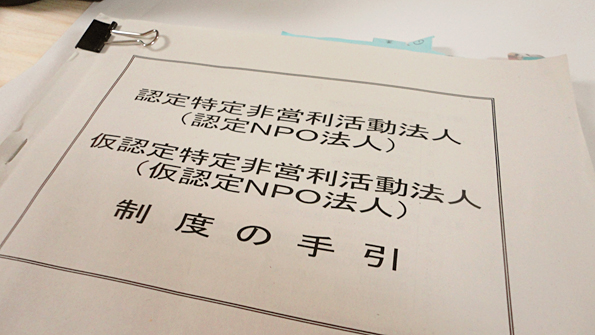 認定特定非営利活動法人
（認定NPO法人）
仮認定特定非営利活動法人
（仮認定NPO法人）
制度の手引